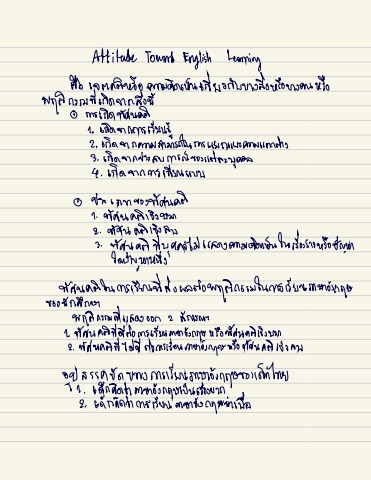 Attitude Toward English Learning
คือ เจตคติหรือ ความคิดเห็นเกี่ยวกับบางสิ่งหรือบางคน หรือ
พฤติกรรมที่เกิดจากสิ่งนี้
การเกิดทัศนคติ
1. เกิดจากการเรียนรู้
2. เกิดจากความสามารถในการ และความแตกต่าง
3. เกิดจากประสบการณ์ของแต่ละบุคคล
4. เกิดจากการเลียนแบบ
ประเภทของทัศนคติ
1. ทัศนคติเชิงบวก
2. ทัศนคติเชิงลบ
3. ทัศนคติที่บุคคลไม่แสดงความคิดเห็น ในเรื่องราวหรือปัญหา
ใดปัญหาหนึ่ง
ทัศนคติในการเรียนที่ส่งผลต่อพฤติกรรมในการเรียนภาษาอังกฤษ
ของนักศึกษา
พฤติกรรมที่แสดงออก 2 ลักษณะ
1. ทัศนคติที่ดีต่อการเรียนภาษาอังกฤษ หรือทัศนคติเชิงบวก
2. ทัศนคติที่ไม่ดีต่อการเรียนภาษาอังกฤษ หรือทัศนคติเชิงลบ
อุปสรรคขัดขวางการเรียนภาษาอังกฤษของเด็กไทย
1. เด็กคิดว่าภาษาอังกฤษเป็นเรื่องยาก
2. เด็กคิดว่าการเรียนภาษาอังกฤษน่าเบื่อ